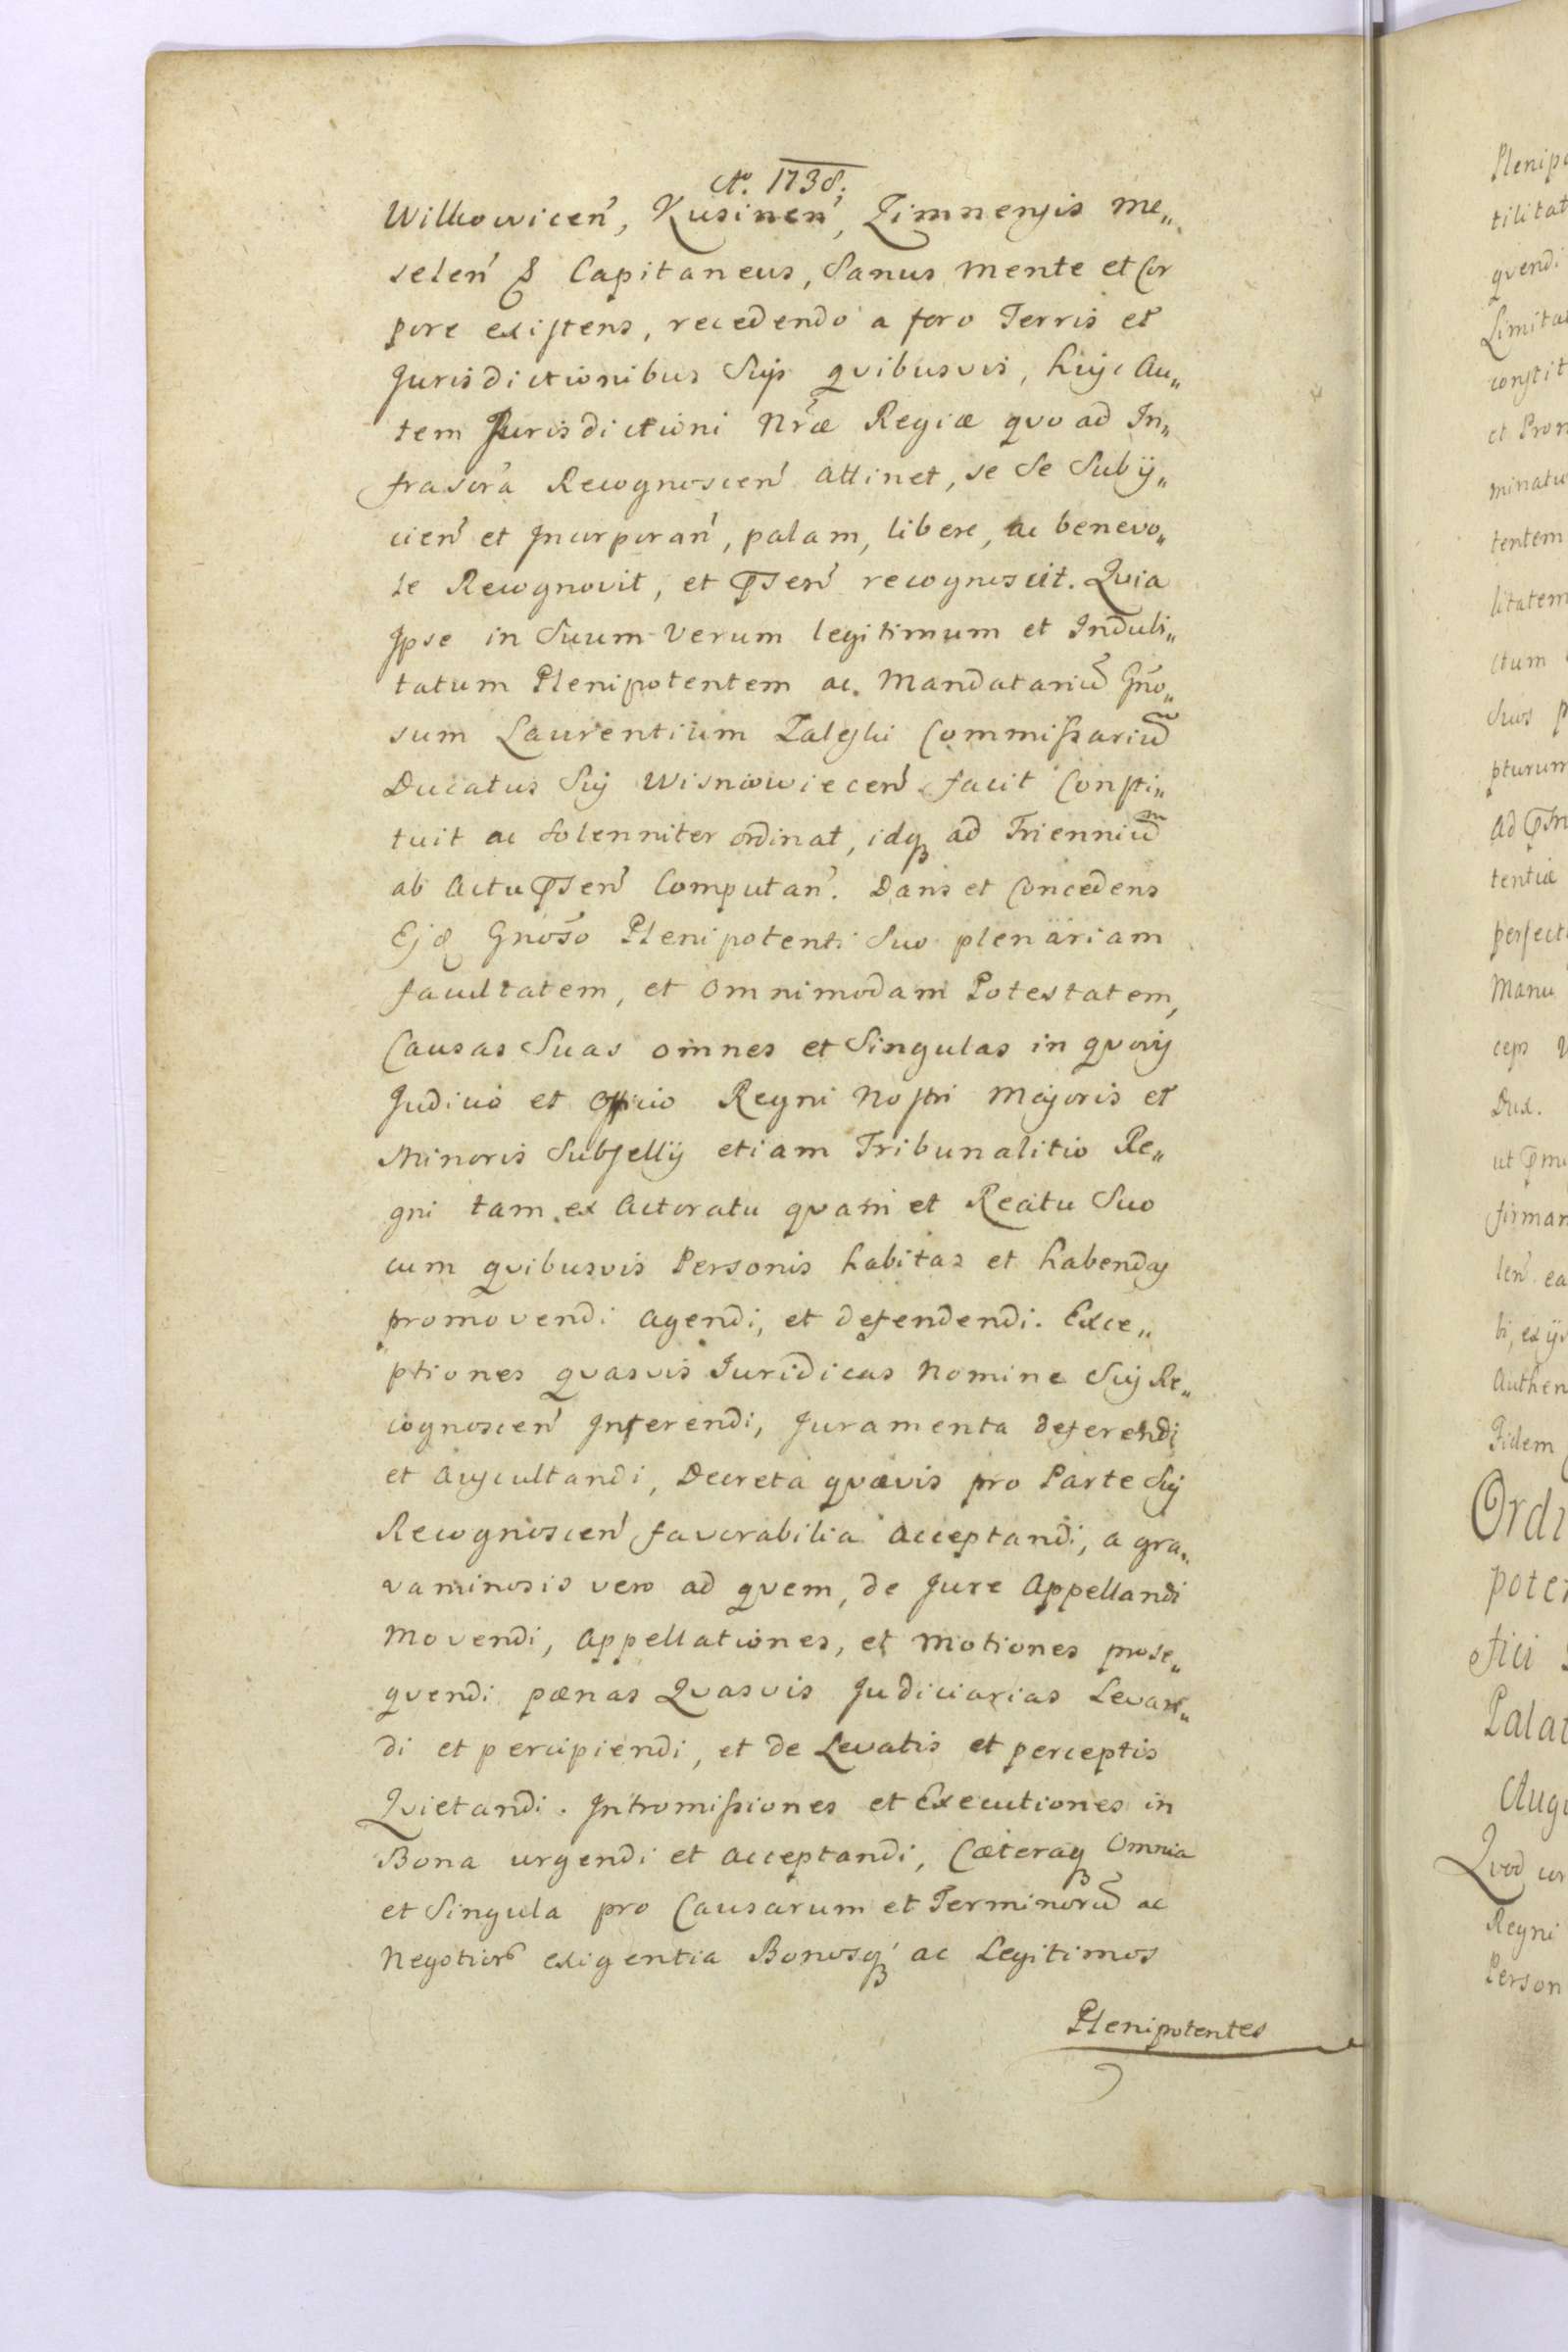 Ao. 1738.
Wilkowicen, Kusinen, Zimnensis Me„
selen & Capitaneus, Sanus mente et Cor
pore existens, recedendo a foro Terris et
Jurisdictionibus Suis quibusvis, huic Au„
tem Jurisdictioni Nræ Regiæ quo ad In„
frascra Recognoscen attinet, se se Subij„
cien et Incorporan, palam, libere, ac benevo„
le Recognovit, et Pnsen recognoscit. Quia
Ipse in Suum Verum legitimum et Indubi„
tatum Plenipotentem ac Mandatariu Gno„
sum Laurentium Zaleski Commissariu
Ducatus Sui Wisniowiecen facit Consti„
tuit ac Solenniter ordinat, idq ad Trienniu
ab Actu Pnsen Computan. Dans et Concedens
Ejd Gnoso Plenipotenti Suo plenariam
facultatem, et Omnimodam Potestatem,
Causas Suas omnes et Singulas in quovis
Judicio et Officio Regni Nostri Majoris et
Minoris Subsellij etiam Tribunalitio Re„
gni tam ex Actoratu quam et Reatu Suo
cum quibusvis Personis habitas et habendas
promovendi agendi, et defendendi. Exce„
ptiones quasvis Juridicas Nomine Sui Re„
cognoscen Inferendi, Juramenta deferendi
et Auscultandi, Decreta quævis pro Parte Sui
Recognoscen favorabilia acceptandi, a gra„
vaminosis vero ad quem, de Jure Appellandi
Movendi, Appellationes, et Motiones prose„
quendi pænas Quasvis Judiciarias Levan„
di et percipiendi, et de Levatis et perceptis
Quietandi. Intromissiones et Executiones in
Bona urgendi et acceptandi, Cæteraq Omnia
et Singula pro Causarum et Terminoru ac
Negotior exigentia Bonosq ac Legitimos
Plenipotentes
Plenip
tilitat
quend
Limita
constit
et Pror
minatu
tentem
litatem
ctum
Suos p
pturum
Ad
tentiæ
perfect
Manu
ceps
Dux.
ut
firmar
len ea
bi, ex ijs
Authen
Fidem
Ordi
poten
fici
Palat
Augu
Quod cor
Regni
Person